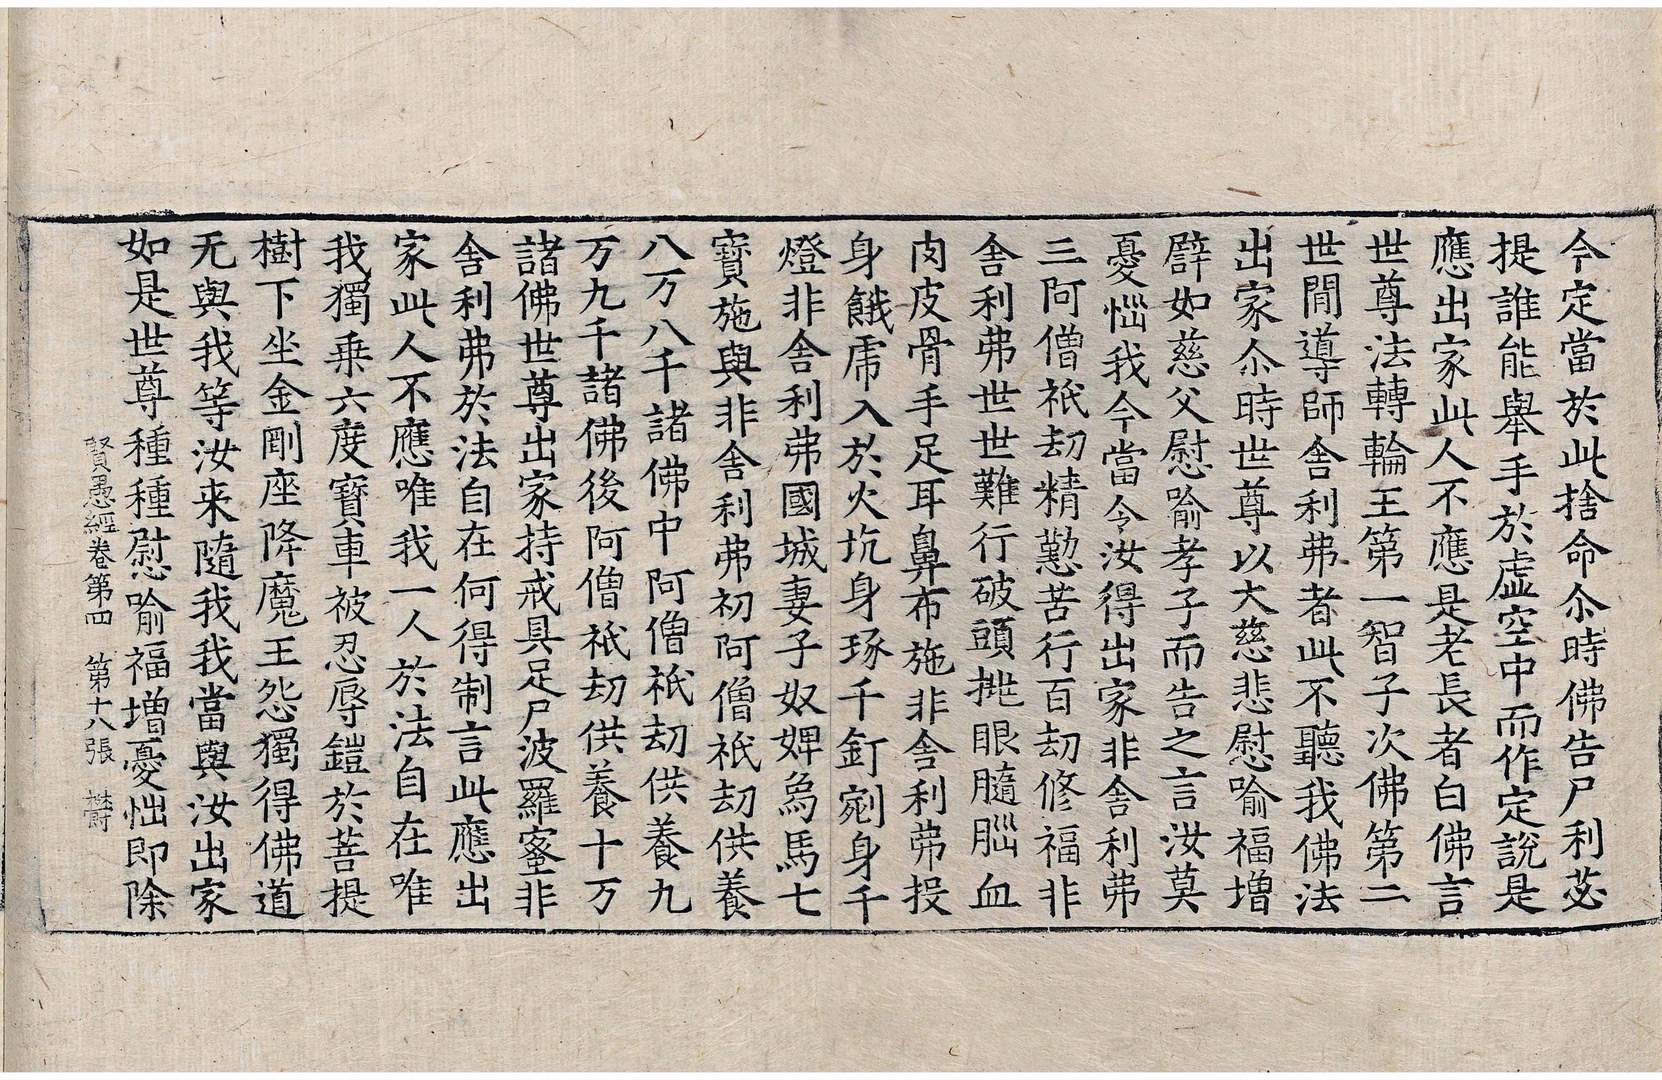 今定當於此捨命尒時佛告尸利苾
提誰能舉手於虛空中而作定說是
應出家此人不應是老長者白佛言
世尊法轉輪王第一智子次佛第二
世閒導師舍利弗者此不聽我佛法
出家尒時世尊以大慈悲慰喻福增
譬如慈父慰喻孝子而告之言汝莫
憂惱我今當令汝得出家非舍利弗
三阿僧祇劫精懃苦行百劫修福非
舍利弗世世難行破頭挑眼髓腦血
肉皮骨手足耳鼻布施非舍利弗投
身餓虎入於火坑身琢千釘剜身千
燈非舍利弗國城妻子奴婢象馬七
寶施與非舍利弗初阿僧祇劫供養
八万八千諸佛中阿僧祇劫供養九
万九千諸佛後阿僧祇劫供養十万
諸佛世尊出家持戒具足尸波羅蜜非
舍利弗於法自在何得制言此應出
家此人不應唯我一人於法自在唯
我獨乗六度寶車被忍辱鎧於菩提
樹下坐金剛座降魔王怨獨得佛道
无與我等汝来隨我我當與汝出家
如是世尊種種慰喻福增憂惱即除
賢愚經卷第四 第十八張 欝